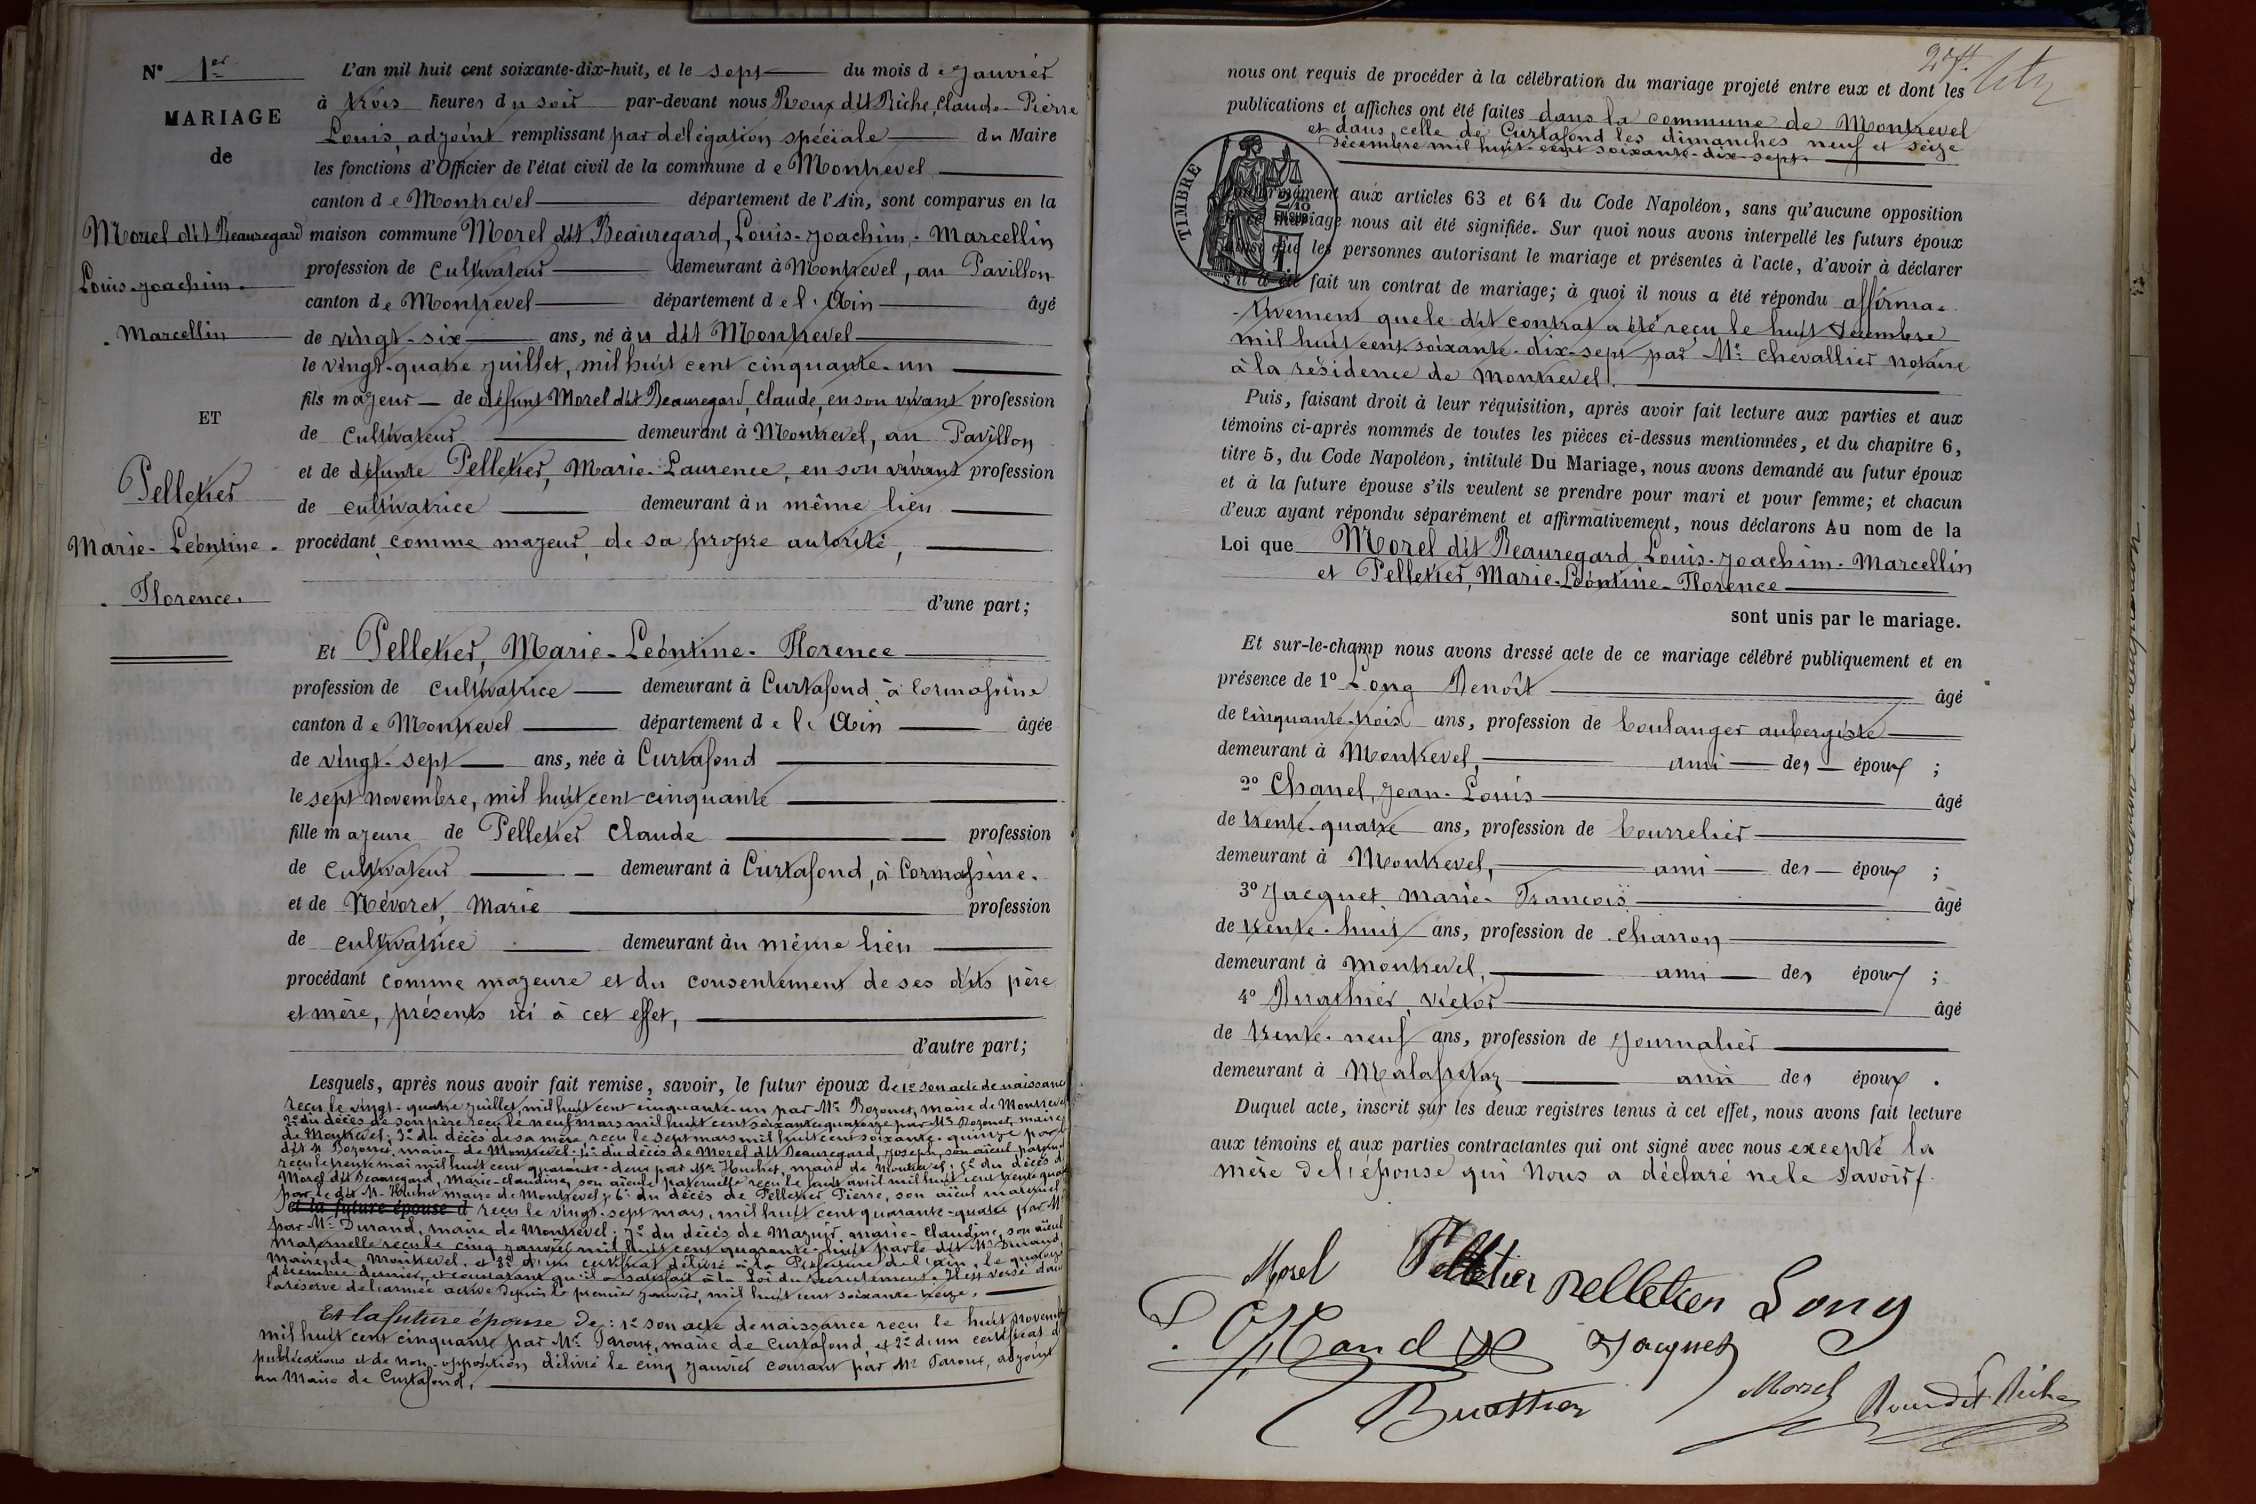 N° 1er
MARIAGE
de
Morel dit Beauregard
Louis-Joachim-
-Marcellin
ET
Pelletier
Marie-Léontine-
-Florence.
L'an mil huit cent soixante-dix-huit, et le sept du mois de Janvier
à trois heures du soir par-devant nous Roux dit Riche, Claude-Pierre
Louis, adjoint remplissant par délégation spéciale du Maire
les fonctions d'Officier de l'état civil de la commune de Montrevel
canton de Montrevel département de l'Ain, sont comparus en la
maison commune Morel dit Beauregard, Louis-Joachim-Marcellin
profession de Cultivateur demeurant à Montrevel, au Pavillon
canton de Montrevel département de l'Ain âgé
de vingt-six ans, né au dit Montrevel
le vingt-quatre juillet, mil huit cent cinquante-un
fils majeur de défunt Morel dit Beauregard, Claude, en son vivant profession
de Cultivateur demeurant à Montrevel, au Pavillon
et de défunte Pelletier, Marie-Laurence, en son vivant profession
de cultivatrice demeurant au même lieu
procédant comme majeur, de sa propre autorité,
d'une part;
Et Pelletier, Marie-Léontine-Florence
profession de cultivatrice demeurant à Curtafond, à Cormassine
canton de Montrevel département de l'Ain âgée
de vingt-sept ans, née à Curtafond
le sept novembre, mil huit cent cinquante
fille majeure de Pelletier Claude profession
de Cultivateur demeurant à Curtafond, à Cormassine.
et de Névoret, Marie profession
de cultivatrice demeurant au même lieu
procédant comme majeure et du consentement de ses dits père
et mère, présents ici à cet effet,
d'autre part;
Lesquels, après nous avoir fait remise, savoir, le futur époux de 1° son acte de naissance
reçu le vingt-quatre juillet, mil huit cent cinquante-un par Mr Bozonet, maire de Montrevel
2° du décès de son père reçu le neuf mars mil huit cent soixante quatorze par Mr Bozonet, maire
de Montrevel; 3° du décès de sa mère, reçu le sept mars mil huit cent soixante-quinze par le
dit Mr Bozonet, maire de Montrevel; 4° du décès de Morel dit Beauregard, Joseph, son aïeul paternel
reçu le trente mai mil huit cent quarante-deux par Mr Huchet, maire de Montrevel; 5° du décès de
Morel dit Beauregard, Marie-Claudine, son aïeule paternelle reçu le avril mil huit cent trente quatre
par le dit Mr Huchet maire de Montrevel; 6° du décès de Pelletier Pierre, son aïeul maternel
et la future épouse d reçu le vingt-sept mars, mil huit cent quarante-quatre par Mr
par Mr Durand, maire de Montrevel; 7° du décès de Mazuir, Marie-Claudine, son aïeule
maternelle reçu le cinq janvier mil huit cent quarante-huit par le dit Mr Durand,
maire de Montrevel, et 8° d'un certificat délivré à la Préfecture de l'Ain, le quatorze
décembre dernier, et constatant qu'il a satisfait à la loi du recrutement. Il est versé dans
la réserve de l'armée active depuis le premier janvier, mil huit cent soixante seize.
Et la future épouse de: 1° son acte de naissance reçu le huit novembre
mil huit cent cinquante par Mr Paroux, maire de Curtafond, et 2° d'un certificat de
publications et de non-opposition délivré le cinq janvier courant par Mr Paroux, adjoint
au Maire de Curtafond,
nous ont requis de procéder à la célébration du mariage projeté entre eux et dont les
publications et affiches ont été faites dans la commune de Montrevel
et dans celle de Curtafond les dimanches neuf et seize
décembre mil huit-cent soixante-dix-sept.
TIMBRE
2/10
EN SUS
Conformément aux articles 63 et 64 du Code Napoléon, sans qu'aucune opposition
mariage nous ait été signifiée. Sur quoi nous avons interpellé les futurs époux
ainsi que les personnes autorisant le mariage et présentes à l'acte, d'avoir à déclarer
s'il a été fait un contrat de mariage; à quoi il nous a été répondu affirma-
-tivement que le dit contrat a été reçu le huit décembre
mil huit cent soixante-dix-sept par Mr Chevallier notaire
à la résidence de Montrevel.
Puis, faisant droit à leur réquisition, après avoir fait lecture aux parties et aux
témoins ci-après nommés de toutes les pièces ci-dessus mentionnées, et du chapitre 6,
titre 5, du Code Napoléon, intitulé Du Mariage, nous avons demandé au futur époux
et à la future épouse s'ils veulent se prendre pour mari et pour femme; et chacun
d'eux ayant répondu séparément et affirmativement, nous déclarons Au nom de la
Loi que Morel dit Beauregard Louis-Joachim-Marcellin
et Pelletier, Marie-Léontine-Florence
sont unis par le mariage.
Et sur-le-champ nous avons dressé acte de ce mariage célébré publiquement et en
présence de 1° Long Benoît âgé
de cinquante-trois ans, profession de boulanger aubergiste
demeurant à Montrevel, ami des époux;
2° Chanel, Jean-Louis âgé
de trente-quatre ans, profession de bourrelier
demeurant à Montrevel, ami des époux;
3° Jacquet Marie-François âgé
de trente-huit ans, profession de charron
demeurant à Montrevel, ami des époux;
4° Buathier, Victor âgé
de trente-neuf ans, profession de journalier
demeurant à Malafretaz ami des époux.
Duquel acte, inscrit sur les deux registres tenus à cet effet, nous avons fait lecture
aux témoins et aux parties contractantes qui ont signé avec nous excepté la
mère de l'épouse qui Nous a déclaré ne le savoir/.
Morel Pelletier Pelletier Long
Jacquet
Buattier Morel Roux dit Riche